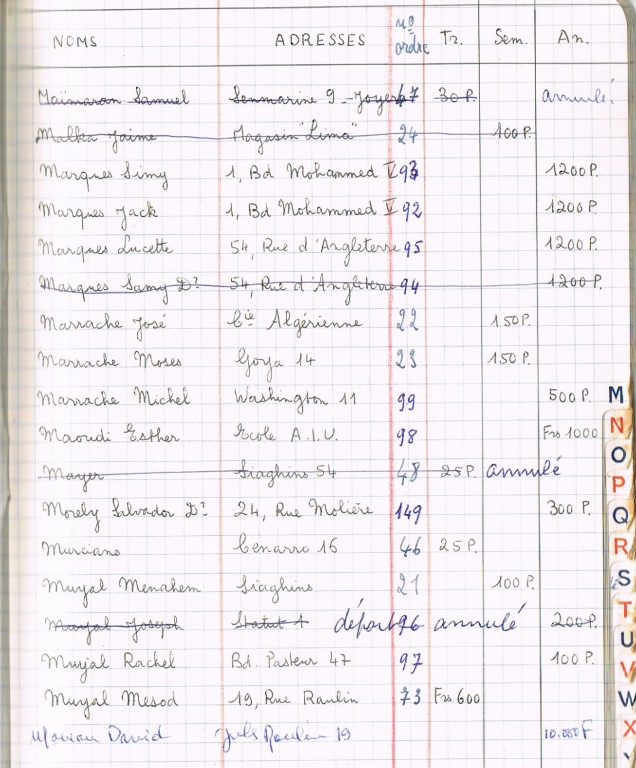 NOMS ADRESSES nº ordre Tr. Sem. An.
Maïmaran Samuel Senmarine 9 - Joyero 47 30 P. annulé
Malka Jaime Magasin "Lima" 24 100 P.
Marques Simy 1, Bd Mohammed V 93 1200 P.
Marques Jack 1, Bd Mohammed V 92 1200 P.
Marques Lucette 54, Rue d'Angleterre 95 1200 P.
Marques Samy Dr 54, Rue d'Angleterre 94 1200 P.
Marrache José Cie Algérienne 22 150 P.
Marrache Moses Goya 14 23 150 P.
Marrache Michel Washington 11 99 500 P.
Maoudi Esther Ecole A.I.U. 98 Frs 1000
Mayer Siaghins 54 48 25 P. annulé
Morely Salvador Dr 24, Rue Molière 149 300 P.
Murciano Cenarro 16 46 25 P.
Muyal Menahem Siaghins 21 100 P.
Muyal Joseph Statut 1 départ 96 annulé 200 P.
Muyal Rachel Bd. Pasteur 47 97 100 P.
Muyal Mesod 19, Rue Raulin 73 Frs 600
David 19 10.000 F
M
N
O
P
Q
R
S
T
U
V
W
X